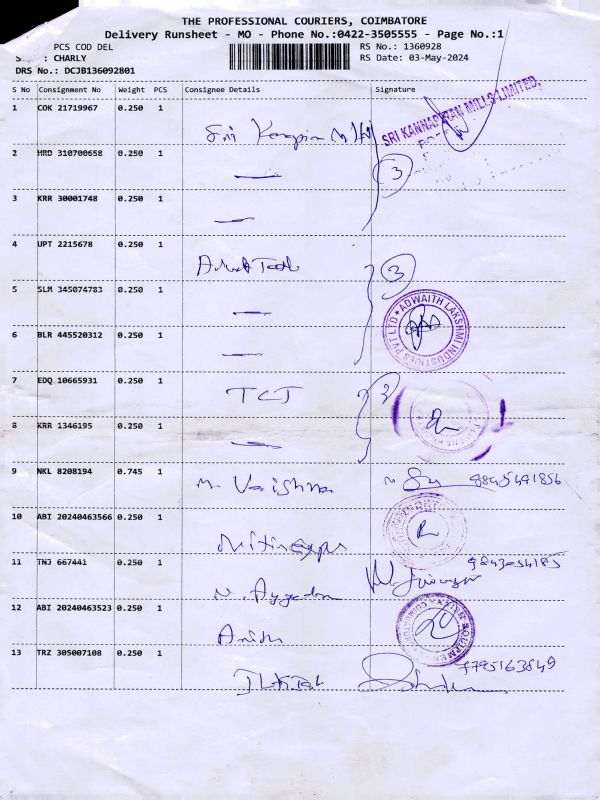 THE PROFESSIONAL COURIERS, COIMBATORE
Delivery Runsheet - MO - Phone No.:0422-3505555 - Page No.:1
PCS COD DEL
RS No.: 1360928
: CHARLY
RS Date: 03-May-2024
DRS No.: DCJB136092801
S No Consignment No Weight PCS Consignee Details Signature
1 COK 21719967 0.250 1
Sri
SRI KANNAPIRAN MILLS LIMITED,
2 HRD 310700658 0.250 1
3
3 KRR 30001748 0.250 1
4 UPT 2215678 0.250 1
3
5 SLM 345074783 0.250 1
ADWAITH LAKSHMI INDUSTRIES PVT LTD
6 BLR 445520312 0.250 1
7 EDQ 10665931 0.250 1
TCI
8 KRR 1346195 0.250 1
9 NKL 8208194 0.745 1
M. Vaishna
10 ABI 20240463566 0.250 1
11 TNJ 667441 0.250 1
12 ABI 20240463523 0.250 1
13 TRZ 305007108 0.250 1
7795163849